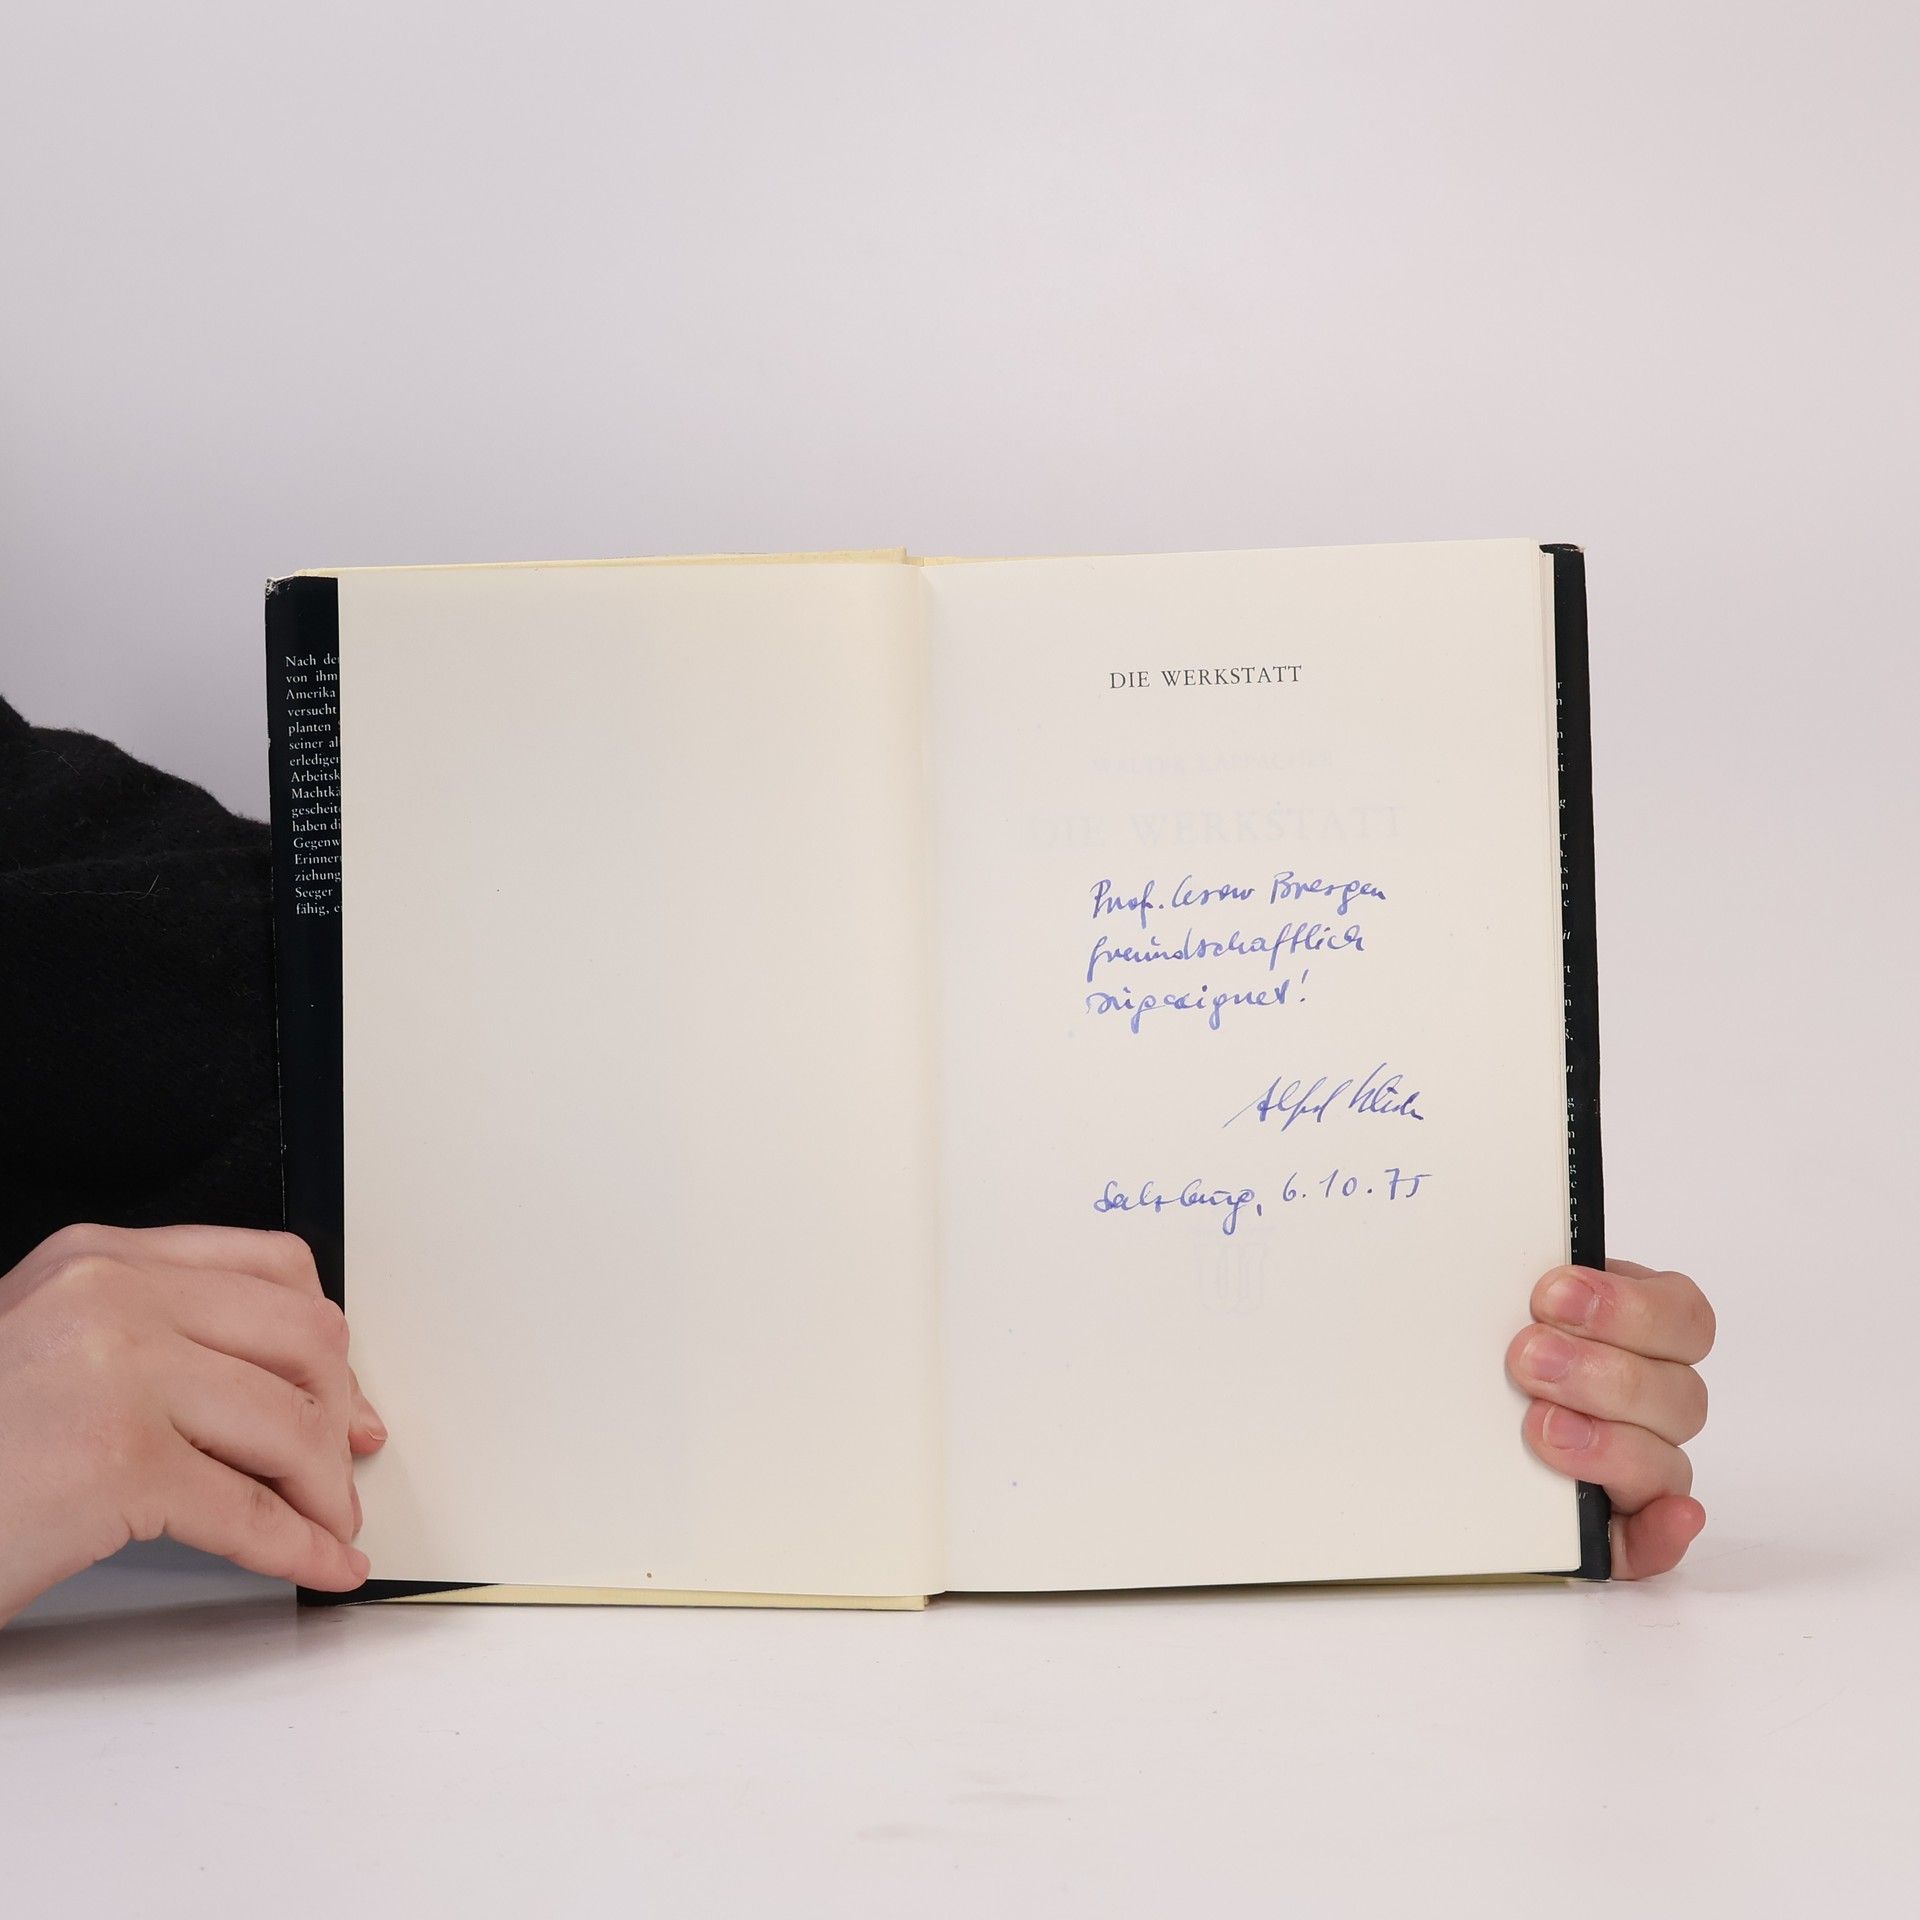 Nach de
von ihm
Amerika
versucht
planten
seiner al
erlediger
Arbeitsk
Machtkä
gescheit
haben di
Gegenw
Erinner
ziehung
Seeger
fähig, e
DIE WERKSTATT
WALTER KAPPACHER
DIE WERKSTATT
Prof. Cesar Bresgen
freundschaftlich
zugeeignet!
Alfred
Salzburg, 6.10.75